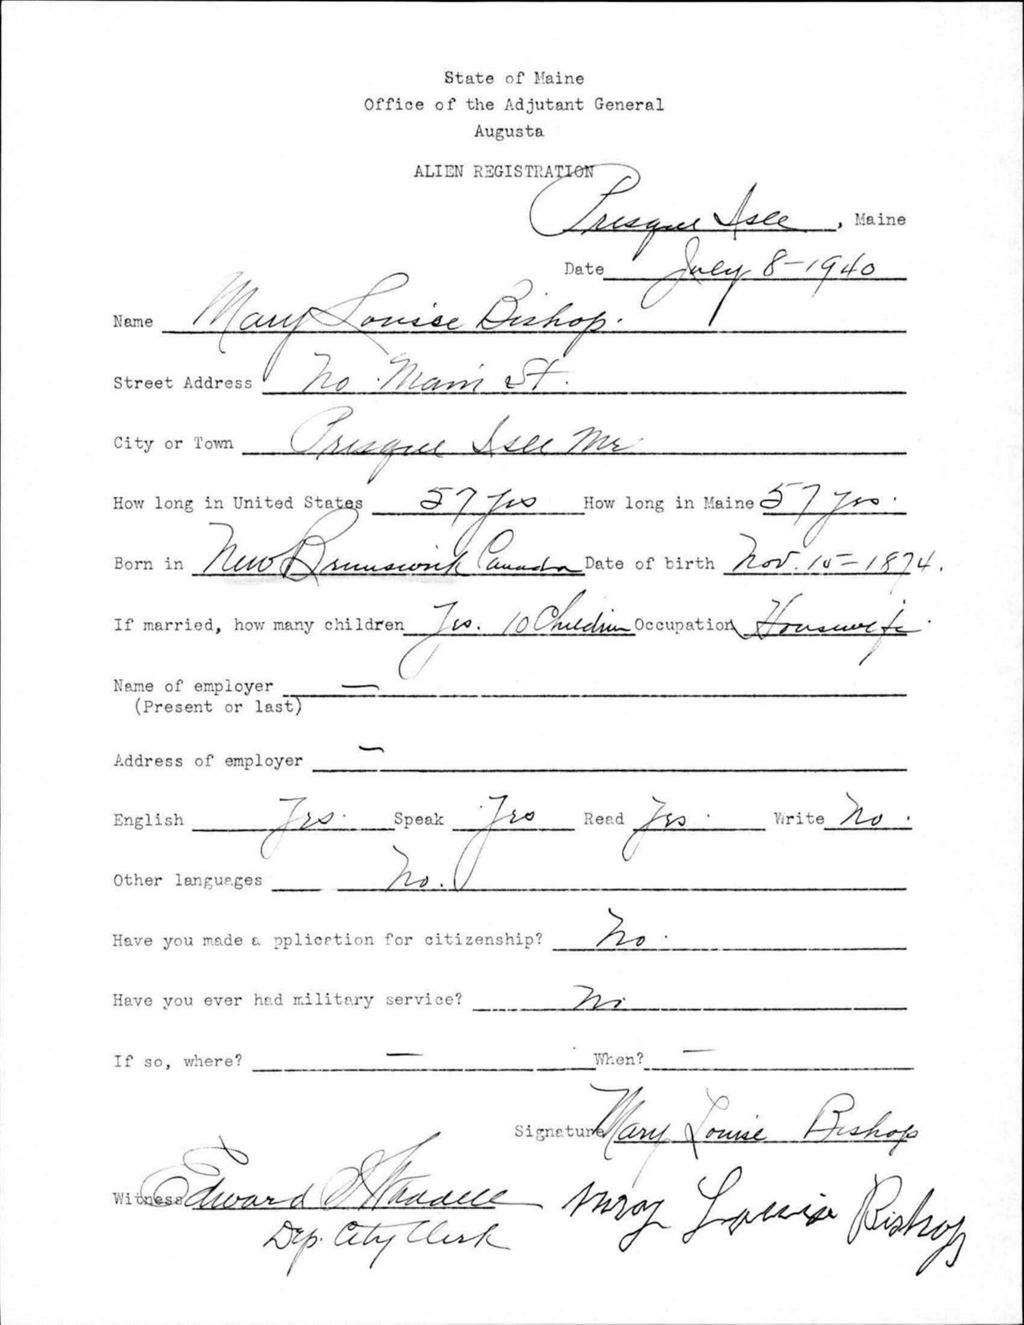 State of Maine
Office of the Adjutant General
Augusta
ALIEN REGISTRATION
Presque Isle, Maine
Date July 8-1940
Name Mary Louise Bishop.
Street Address No Main St.
City or Town Presque Isle Me
How long in United States 57 yrs How long in Maine 57 yrs.
Born in New Brunswick Canada Date of birth Nov. 15-1874.
If married, how many children Yes. 10 Children Occupation Housewife
Name of employer —
(Present or last)
Address of employer —
English Yes. Speak Yes Read Yes. Write No.
Other languages No.
Have you made a pplication for citizenship? No.
Have you ever had military service? No
If so, where? — When? —
Signature Mary Louise Bishop
Witness Edward
Mary Louise Bishop
Dep. City Clerk